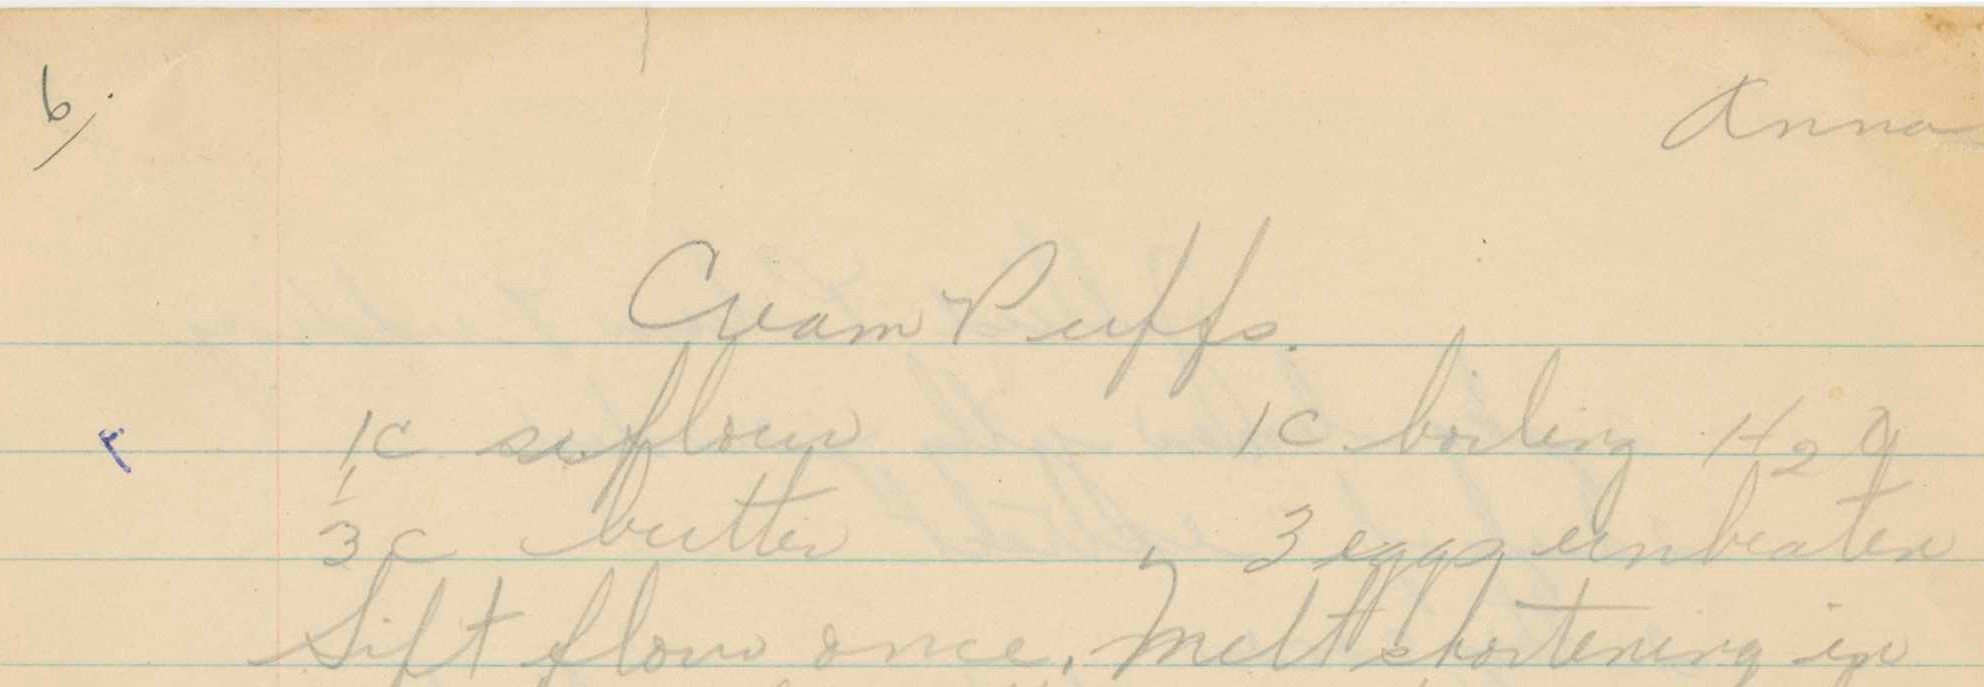 6/.
Anna
Cream Puffs.
1c flour 1c boiling H2O
1/3c butter 3 eggs unbeaten
Sift flour once, Melt shortening in